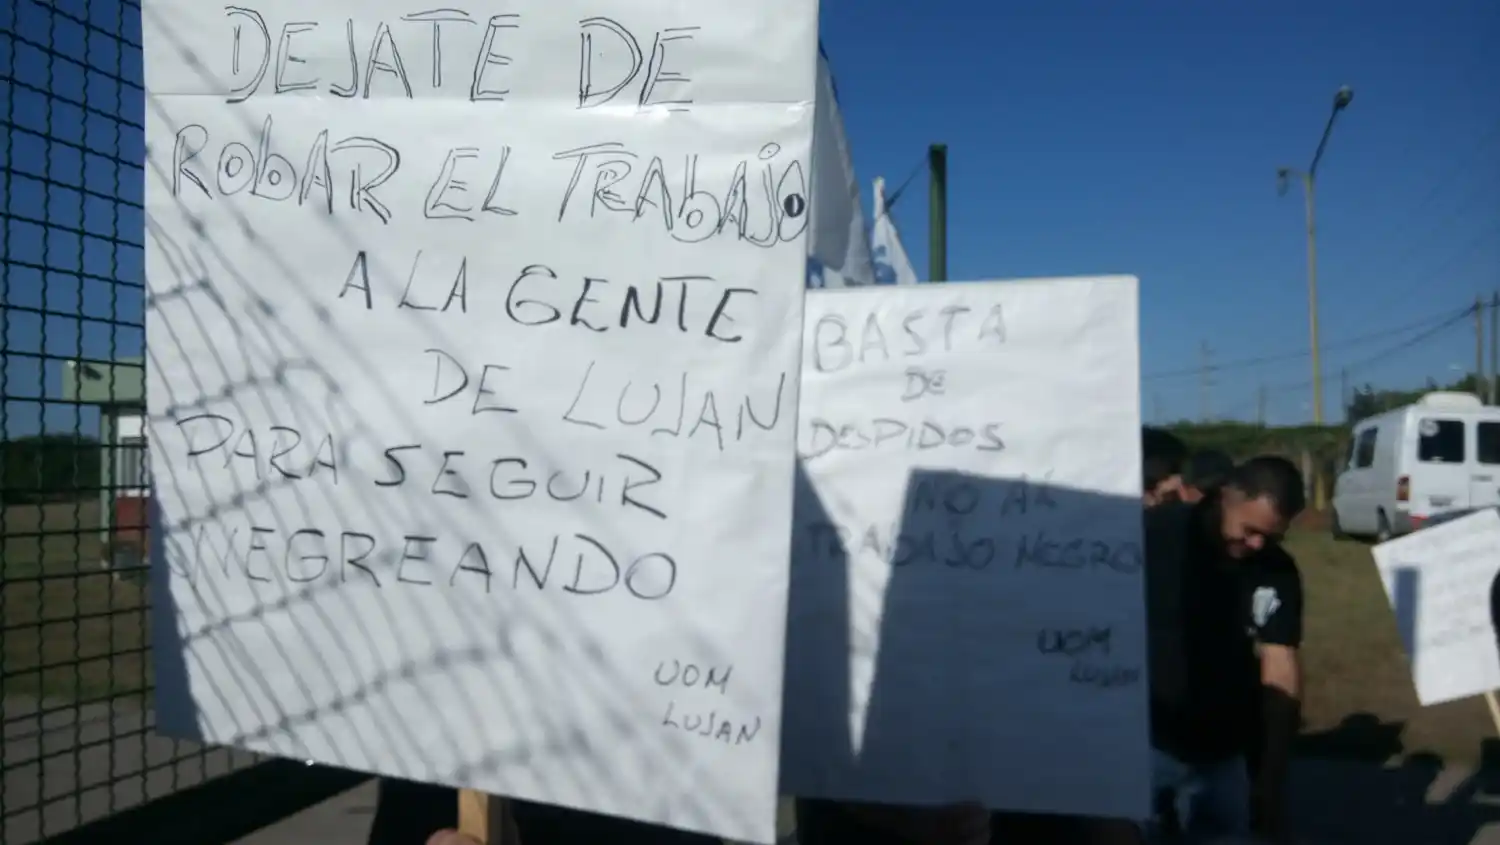 DEJATE DE
ROBAR EL TRABAJO
A LA GENTE
DE LUJAN
PARA SEGUIR
NEGREANDO
UOM
LUJAN
BASTA
DE
DESPIDOS
NO AL
TRABAJO NEGRO
UOM
LUJAN